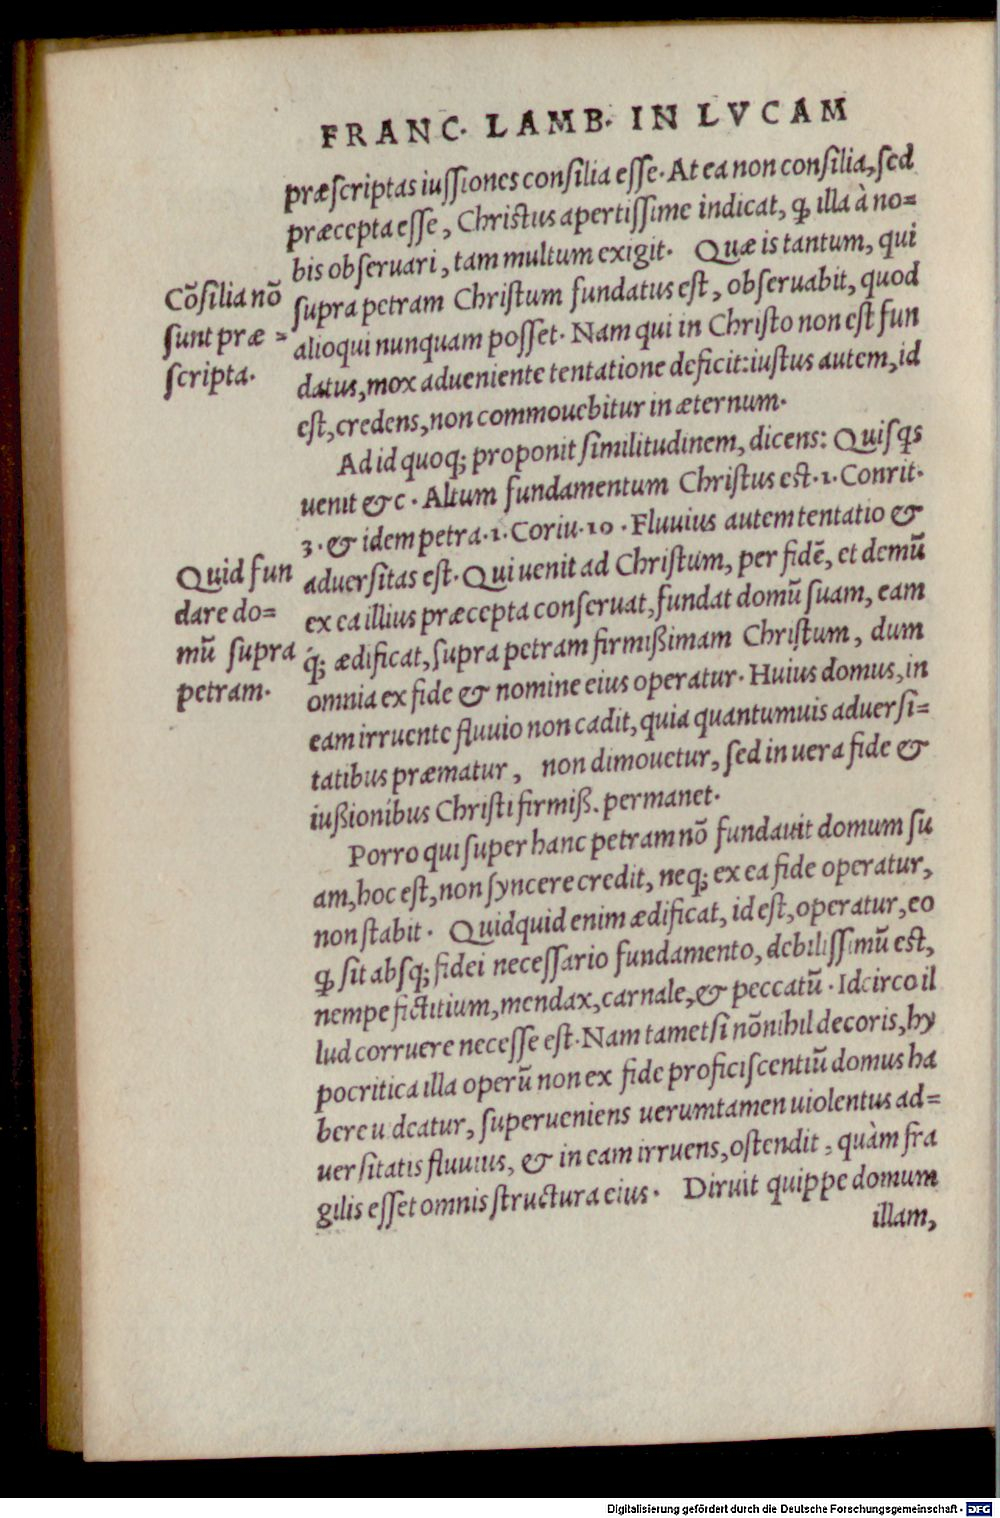 FRANC. LAMB. IN LVCAM
præſcriptas iuſſiones conſilia eſſe. At ea non conſilia, ſed
præcepta eſſe, Chriſtus apertiſſime indicat, ꝙ illa à no=
bis obſeruari, tam multum exigit. Quæ is tantum, qui
ſupra petram Chriſtum fundatus eſt, obſeruabit, quod
alioqui nunquam poſſet. Nam qui in Chriſto non eſt fun
datus, mox adueniente tentatione deficit: iuſtus autem, id
eſt, credens, non commouebitur in æternum.
Cõſilia nõ
ſunt præ =
ſcripta.
Ad id quoq; proponit ſimilitudinem, dicens: Quiſqs
uenit &c. Altum fundamentum Chriſtus eſt. 1. Conrit.
3. & idem petra. 1. Coriu. 10. Fluuius autem tentatio &
aduerſitas eſt. Qui uenit ad Chriſtum, per fidẽ, et demũ
ex ea illius præcepta conſeruat, fundat domũ ſuam, eam
q́; ædificat, ſupra petram firmißimam Chriſtum, dum
omnia ex fide & nomine eius operatur. Huius domus, in
eam irruente fluuio non cadit, quia quantumuis aduerſi=
tatibus præmatur, non dimouetur, ſed in uera fide &
iußionibus Chriſti firmiß. permanet.
Quid fun
dare do=
mũ ſupra
petram.
Porro qui ſuper hanc petram nõ fundauit domum ſu
am, hoc eſt, non ſyncere credit, neq; ex ea fide operatur,
non ſtabit. Quidquid enim ædificat, id eſt, operatur, eo
ꝙ ſit abſq; fidei neceſſario fundamento, debiliſſimũ eſt,
nempe fictitium, mendax, carnale, & peccatũ. Idcirco il
lud corruere neceſſe eſt. Nam tametſi nõnihil decoris, hy
pocritica illa operũ non ex fide proficiſcentiũ domus ha
bere uideatur, ſuperueniens uerumtamen uiolentus ad=
uerſitatis fluuius, & in eam irruens, oſtendit, quàm fra
gilis eſſet omnis ſtructura eius. Diruit quippe domum
illam,
Digitalisierung gefördert durch die Deutsche Forschungsgemeinschaft - DFG